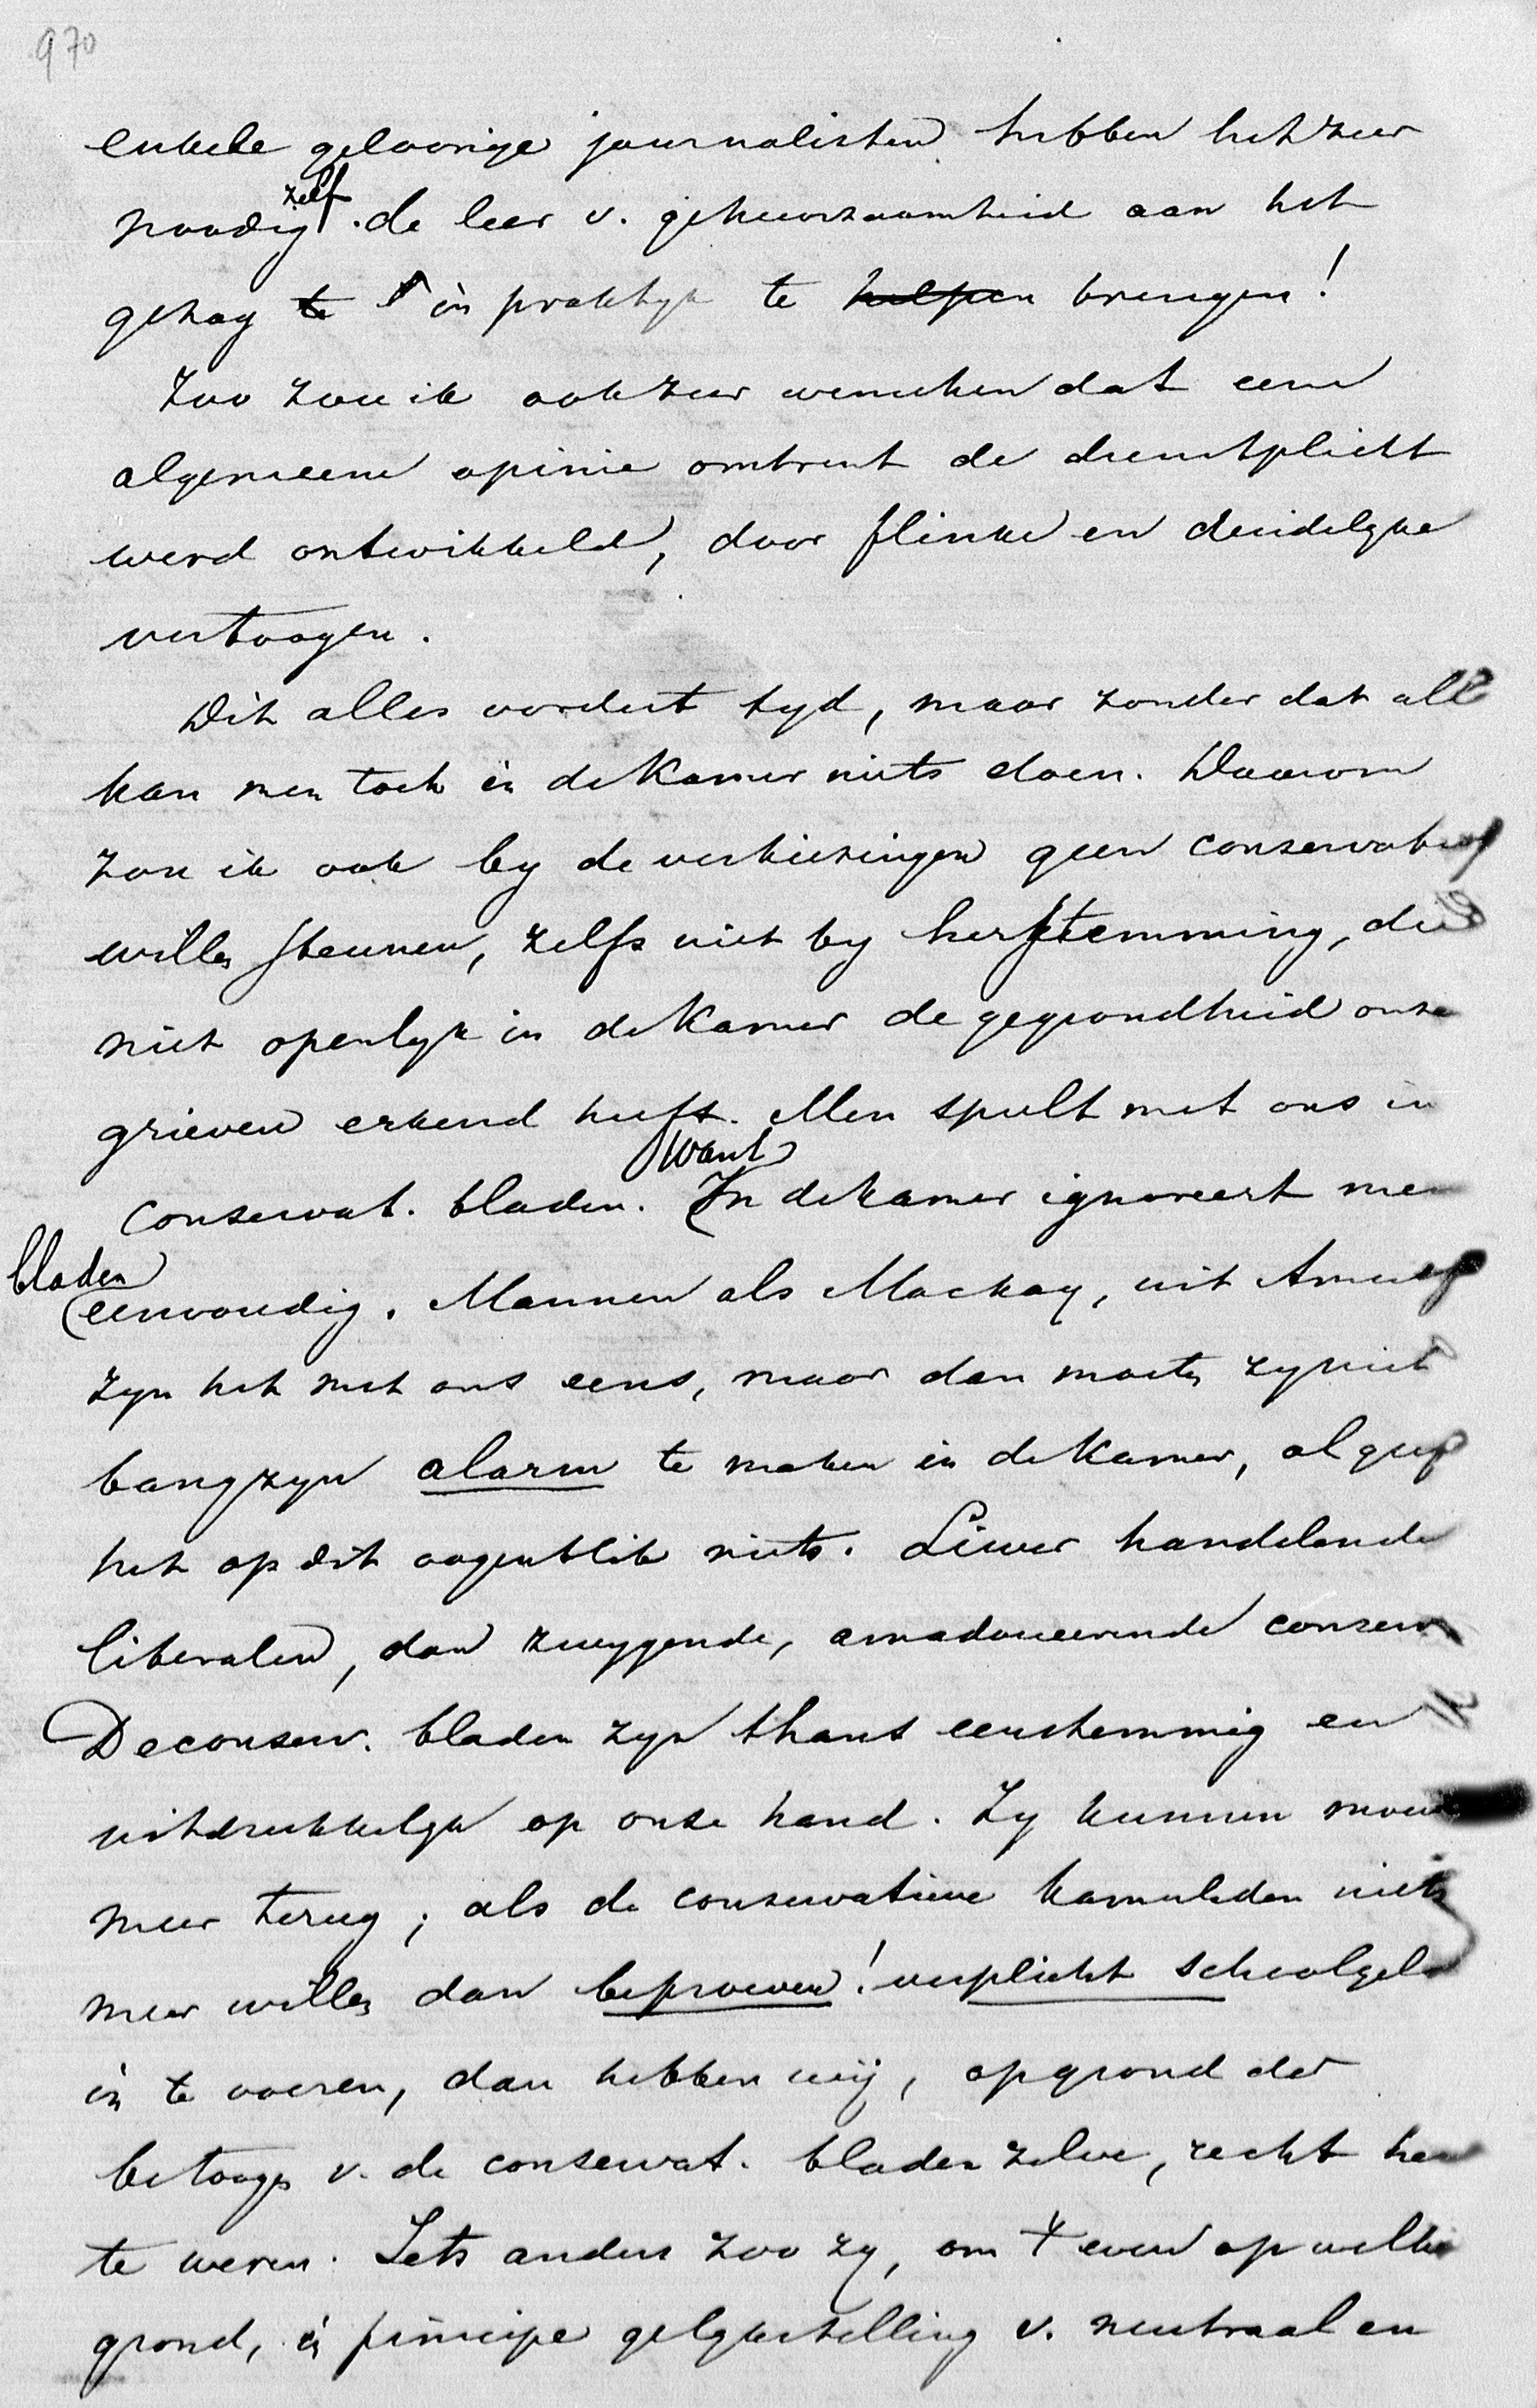 970
enkele geloovige journalisten hebben het zeer
noodig zelf de leer v. gehoorzaamheid aan het
gezag te in praktyk te helpen brengen!
Zoo zou ik ook zeer wenschen dat eene
algemeene opinie omtrent de dienstplicht
werd ontwikkeld, door flinke en duidelyke
vertoogen.
Dit alles vordert tyd, maar zonder dat alles
kan men toch in de Kamer niets doen. Daarom
zou ik ook by de verkiezingen geen conservatief
willen steunen, zelfs niet by herstemming, die
niet openlyk in de Kamer de gegrondheid onzer
grieven erkend heeft. Men speelt met ons in
conservat. bladen. want In de kamer ignoreert men
bladen
eenvoudig. Mannen als Mackay, uit Amers
zyn het met ons eens, maar dan moeten zy niet
bang zyn alarm te maken in de Kamer, al geeft
het op dit oogenblik niets. Liever handelende
liberalen, dan zwygende, amadoueerende conserv
De conserv. bladen zyn thans eenstemmig en
uitdrukkelyk op onze hand. Zy kunnen
meer terug; als de conservatieve kamerleden niets
meer willen dan beproeven! verplicht schoolgeld
in te voeren, dan hebben wij, op grond der
betoogen v. de conservat. bladen zelve, recht hen
te weren. Iets anders zoo zy, om 't even op welken
grond, in principe gelykstelling v. neutraal en